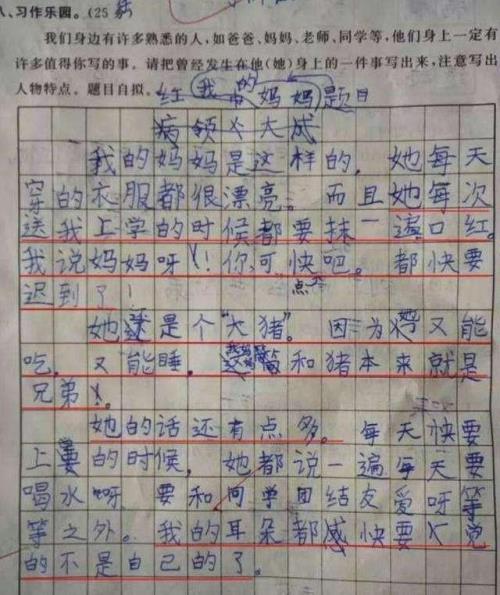 、习作乐园。(25
我们身边有许多熟悉的人,如爸爸、妈妈、老师、同学等,他们身上一定有
许多值得你写的事。请把曾经发生在他(她)身上的一件事写出来,注意写出
人物特点。题目自拟。
红 我的妈妈 题目
病领 大成
我的妈妈是这样的,她每天
穿的衣服都很漂亮。而且她每次
送我上学的时候都要抹一遍口红。
我说妈妈呀!你可快点吧。都快要
迟到了!
她还是个“大猪”。因为她又能
吃,又能睡,我妈 和猪本来就是
兄弟。
她的话还有点多。每天快要
上 的时候,她都说一遍每天要
喝水呀 要和同学团结友爱呀等
等之外。我的耳朵都感快要 觉
的不是自己的了。